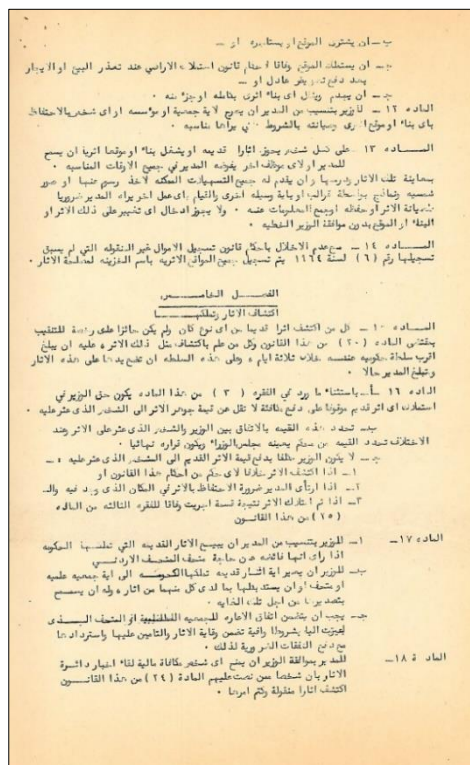 ب - ان يشترى الموقع او يستاجره او -
ج - ان يستملك الموقع وفاقا لاحكام قانون استملاك الاراضي عند تعذر البيع او الايجار
بعد دفع تعويض عادل او -
د - ان يهدم وينقل اى بناء اثرى بكامله او جزء منه .
الماده ١٢ - للوزير بتنسيب من المدير ان يعهد لاية جمعية او مؤسسه او اى شخص بالاحتفاظ
باى بناء او موقع اثرى وصيانته بالشروط التي يراها مناسبه .
المــاده ١٣ - على كل شخص يحوز اثارا قديمه او يشغل بناء او موقعا اثريا ان يسمح
للمدير او لاى موظف اخر يفوضه المدير في جميع الاوقات المناسبه .
بمعاينة تلك الاثار ودرسها وان يقدم له جميع التسهيلات الممكنه لاخذ رسم عنها او صور
شمسيه ونماذج بواسطة قوالب او باية وسيله اخرى والقيام باى عمل اخر يراه المدير ضروريا
لصيانة الاثر او حفظه او جمع المعلومات عنه . ولا يجوز ادخال اى تغيير على ذلك الاثر او
البناء او الموقع بدون موافقة الوزير الخطيه .
المــاده ١٤ - مع عدم الاخلال باحكام قانون تسجيل الاموال غير المنقوله التي لم يسبق
تسجيلها رقم (٦) لسنة ١٩٦٤ يتم تسجيل جميع المواقع الاثريه باسم الخزينه لمصلحة الاثار .
الفصل الخامس
اكتشاف الاثار وتملكها
المــاده ١٥ - كل من اكتشف اثرا قديما من اى نوع كان ولم يكن حائزا على رخصة للتنقيب
بمقتضى الماده (٢٠) من هذا القانون وكل من علم باكتشاف مثل ذلك الاثر عليه ان يبلغ
اقرب سلطة حكوميه عنه خلال ثلاثة ايام وعلى هذه السلطه ان تضع يدها على هذه الاثار
وتبلغ المدير حالا .
الماده ١٦ - أ - باستثناء ما ورد في الفقره (٣) من هذا الماده يكون حق الوزير في
استملاك اى اثر قديم موقوفا على دفع مكافئة لا تقل عن قيمة جوهر الاثر الى الشخص الذى عثر عليه .
ب - تحدد هذه القيمه بالاتفاق بين الوزير والشخص الذى عثر على الاثر وعند
الاختلاف تحدد القيمه من محكم يعينه مجلس الوزراء ويكون قراره نهائيا .
ج - لا يكون الوزير مكلفا بدفع قيمة الاثر القديم الى الشخص الذى عثر عليه : -
١ - اذا اكتشف الاثر خلافا لاى حكم من احكام هذا القانون او
٢ - اذا ارتأى المدير ضرورة الاحتفاظ بالاثر في المكان الذى وجد فيه او
٣ - اذا تم امتلاك الاثر نتيجة قسمة اجريت وفاقا للفقره الثالثه من الماده
(٢٥) من هذا القانــون
الماده ١٧ - ١ - للوزير بتنسيب من المدير ان يبيع الاثار القديمه التي تملكها الحكومه
اذا راى انها فائضه عن حاجة المتحف الاردنــي
ب - للوزير ان يعير اية اثــار قديمه تملكها الحكومــه الى اية جمعيه علميه
او متحف او ان يستبدلها بما لدى كل منهما من اثار وله ان يسمــح
بتصديرها من اجل تلك الغايه .
ج - يجب ان يتضمن اتفاق الاعاره للجمعيه او المتحف الــذى
اعيرت اليه شروطا وافية تضمن وقاية الاثار والتامين عليها واستردادها
مع دفع النفقات الضرورية لذلك .
المادة ١٨ - للمدير بموافقة الوزير ان يمنح اى شخص مكافاة مالية لقاء اخبار دائــرة
الاثار بان شخصا ممن نصت عليهم المادة (٢٤) من هذا القانــون
اكتشف اثارا منقولة وكتم امرها .